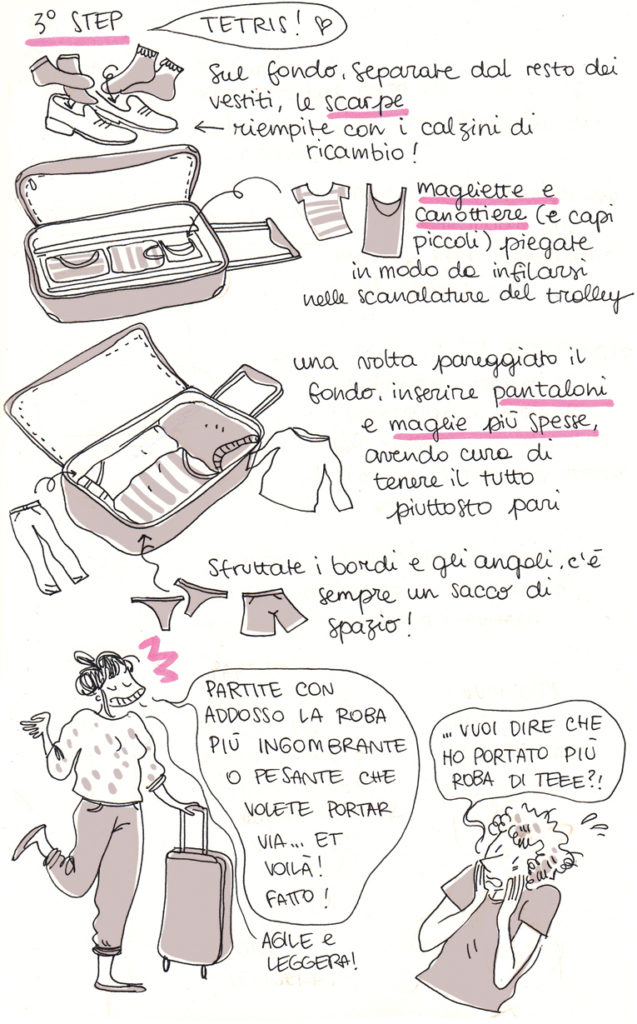 3° STEP
TETRIS! ♡
Sul fondo, separate dal resto dei
vestiti, le scarpe
← riempite con i calzini di
ricambio!
magliette e
canottiere (e capi
piccoli) piegate
in modo da infilarsi
nelle scanalature del trolley
una volta pareggiato il
fondo, inserire pantaloni
e maglie più spesse,
avendo cura di
tenere il tutto
piuttosto pari
Sfruttate i bordi e gli angoli, c'è
sempre un sacco di
spazio!
PARTITE CON
ADDOSSO LA ROBA
PIÙ INGOMBRANTE
O PESANTE CHE
VOLETE PORTAR
VIA... ET
VOILÀ!
FATTO!
AGILE e
LEGGERA!
...VUOI DIRE CHE
HO PORTATO PIÙ
ROBA DI TEEE?!